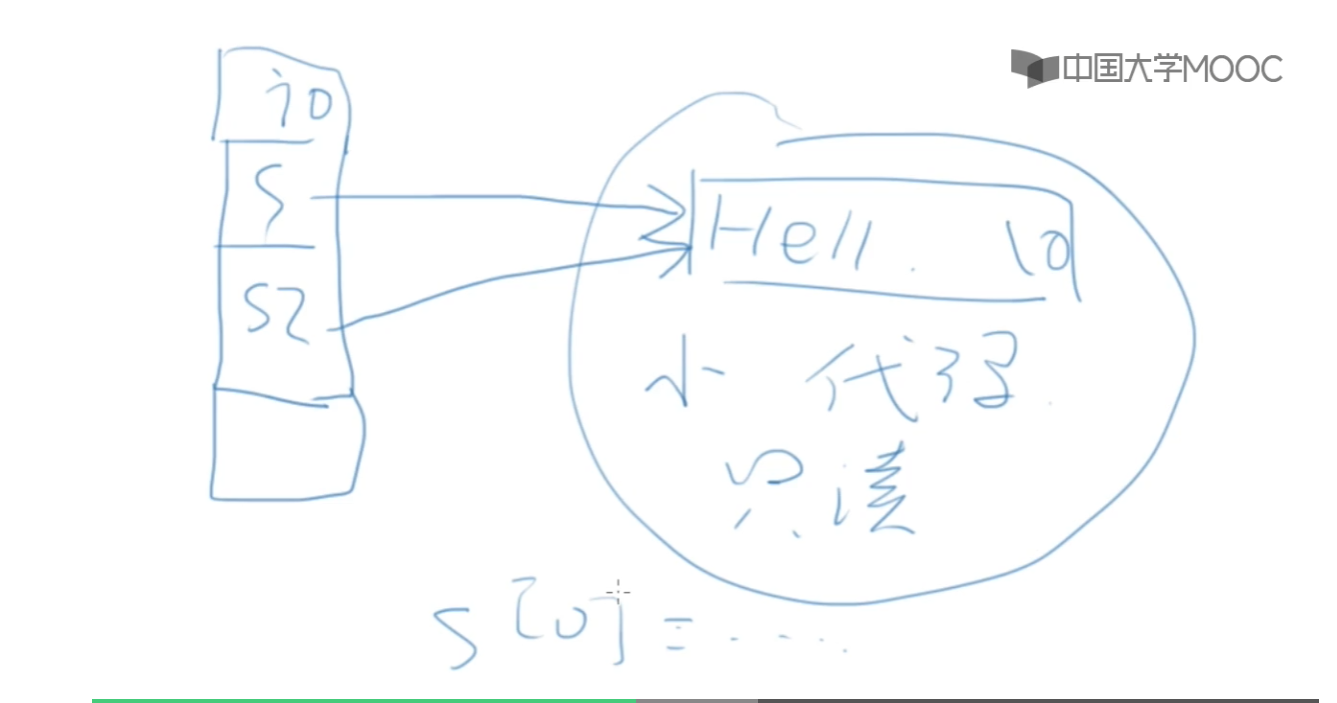 中国大学MOOC
i0
S
S2
Hell. \0
小 代码
只读
S[0] = .....